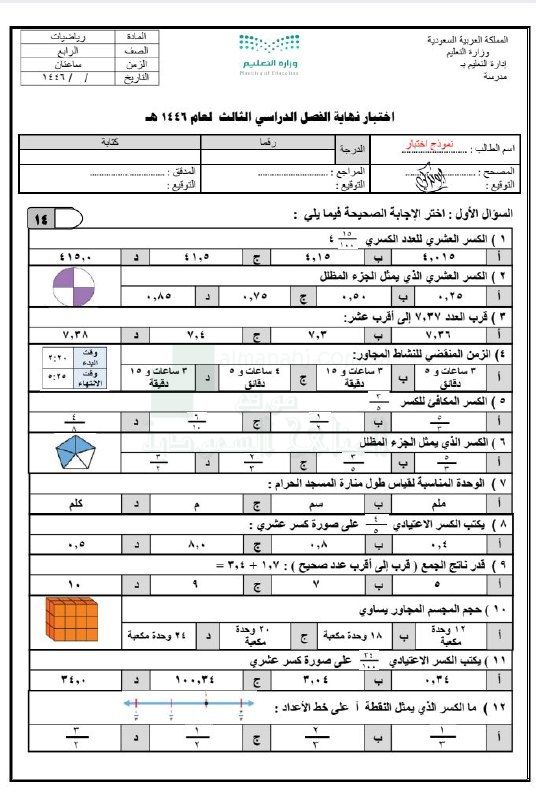 المملكة العربية السعودية
وزارة التعليم
إدارة التعليم بـ
مدرسة
وزارة التعليم
Ministry of Education
المادة رياضيات
الصف الرابع
الزمن ساعتان
التاريخ / / ١٤٤٦
اختبار نهاية الفصل الدراسي الثالث لعام ١٤٤٦ هـ
اسم الطالب : نموذج اختبار
الدرجة رقما كتابة
المصحح : المراجع : المدقق :
التوقيع : التوقيع : التوقيع :
السؤال الأول : اختر الإجابة الصحيحة فيما يلي :
١٤
١ ) الكسر العشري للعدد الكسري ٤ ١٥/١٠٠
أ ٤,٠١٥ ب ٤,١٥ ج ٤١,٥ د ٤١٥,٠
٢ ) الكسر العشري الذي يمثل الجزء المظلل
أ ٠,٢٥ ب ٠,٥٠ ج ٠,٧٥ د ٠,٨٥
٣ ) قرب العدد ٧,٣٧ إلى أقرب عشر:
أ ٧,٣٦ ب ٧,٣ ج ٧,٤ د ٧,٣٨
٤) الزمن المنقضي للنشاط المجاور:
وقت البدء ٢:٢٠
وقت الانتهاء ٥:٢٥
أ ٣ ساعات و ٥ دقائق ب ٣ ساعات و ١٥ دقيقة ج ٤ ساعات و ٥ دقائق د ٣ ساعات و ١٥ دقيقة
almanahj.com
٥ ) الكسر المكافئ للكسر ٣/٥
أ ٥/٣ ب ١/٢ ج ٦/١٠ د ٤/٨
٦ ) الكسر الذي يمثل الجزء المظلل
أ ٥/٣ ب ٣/٥ ج ٢/٣ د ٣/٢
٧ ) الوحدة المناسبة لقياس طول منارة المسجد الحرام :
أ ملم ب سم ج م د كلم
٨ ) يكتب الكسر الاعتيادي ٤/٥ على صورة كسر عشري :
أ ٠,٤ ب ٠,٨ ج ٨,٠ د ٠,٥
٩ ) قدر ناتج الجمع ( قرب إلى أقرب عدد صحيح ) : ١,٧ + ٣,٤ =
أ ٥ ب ٧ ج ٩ د ١٠
١٠ ) حجم المجسم المجاور يساوي
أ ١٢ وحدة مكعبة ب ١٨ وحدة مكعبة ج ٢٠ وحدة مكعبة د ٢٤ وحدة مكعبة
١١ ) يكتب الكسر الاعتيادي ٣٤/١٠٠ على صورة كسر عشري
أ ٠,٣٤ ب ٣,٠٤ ج ١٠٠,٣٤ د ٣٤,٠
١٢ ) ما الكسر الذي يمثل النقطة أ على خط الأعداد :
أ ١/٣ ب ٢/٣ ج ١/٢ د ٣/٢